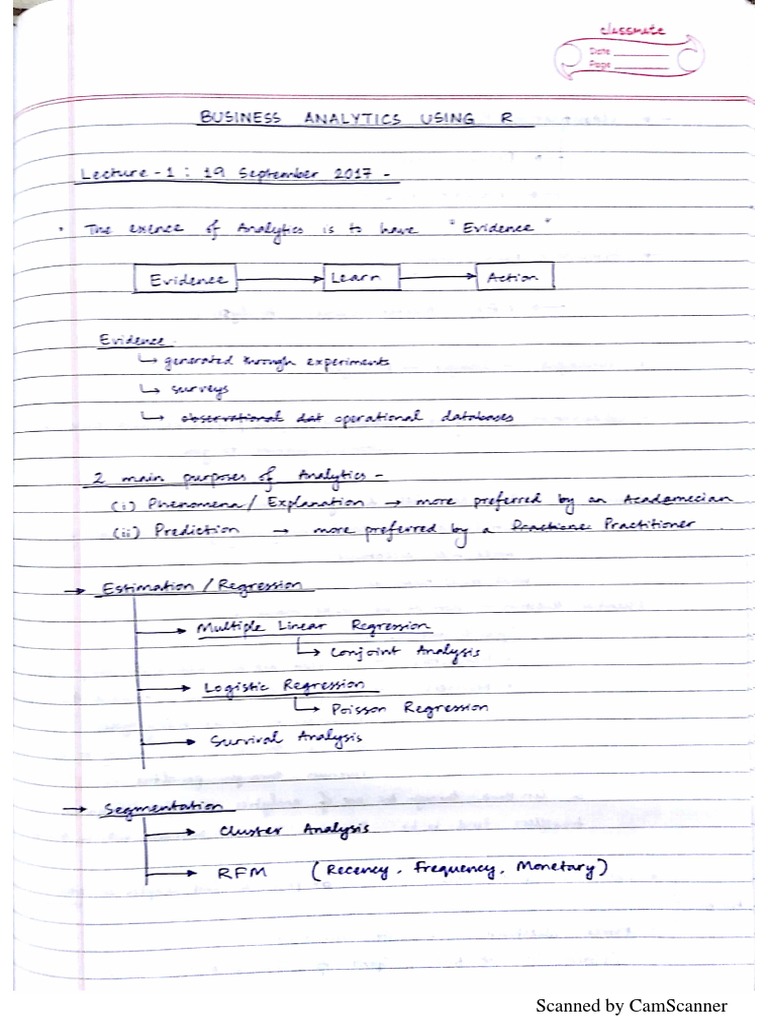 classmate
Date
Page
BUSINESS ANALYTICS USING R
Lecture - 1 : 19 September 2017 -
• The exence of Analytics is to have "Evidence"
Evidence → Learn → Action
Evidence
↳ generated through experiments
↳ surveys
↳ observational dat operational databases
2 main purposes of Analytics -
(i) Phenomena / Explanation → more preferred by an Academecian
(ii) Prediction → more preferred by a Practitioner
→ Estimation / Regression
→ Multiple Linear Regression
↳ Conjoint Analysis
→ Logistic Regression
↳ Poisson Regression
→ Survival Analysis
→ Segmentation
→ Cluster Analysis
→ RFM (Recency, Frequency, Monetary)
Scanned by CamScanner